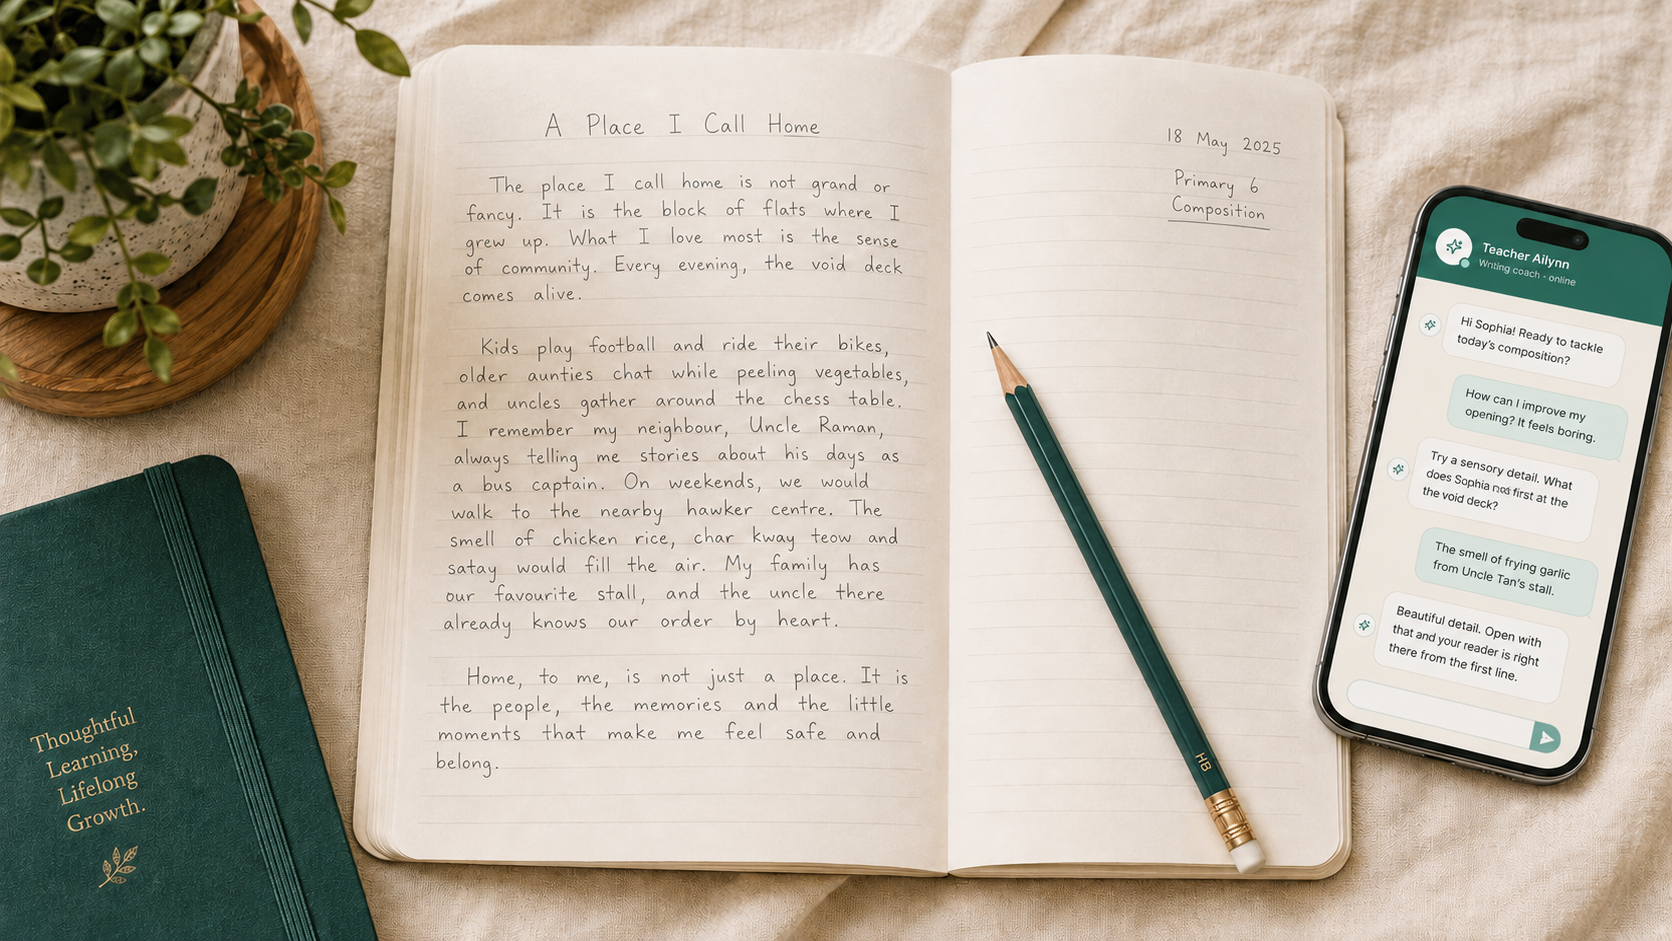 A Place I Call Home
The place I call home is not grand or
fancy. It is the block of flats where I
grew up. What I love most is the sense
of community. Every evening, the void deck
comes alive.
Kids play football and ride their bikes,
older aunties chat while peeling vegetables,
and uncles gather around the chess table.
I remember my neighbour, Uncle Raman,
always telling me stories about his days as
a bus captain. On weekends, we would
walk to the nearby hawker centre. The
smell of chicken rice, char kway teow and
satay would fill the air. My family has
our favourite stall, and the uncle there
already knows our order by heart.
Home, to me, is not just a place. It is
the people, the memories and the little
moments that make me feel safe and
belong.
18 May 2025
Primary 6
Composition
HB
Thoughtful
Learning,
Lifelong
Growth.
Teacher Ailynn
Writing coach - online
Hi Sophia! Ready to tackle
today's composition?
How can I improve my
opening? It feels boring.
Try a sensory detail. What
does Sophia first at the
the void deck?
The smell of frying garlic
from Uncle Tan's stall.
Beautiful detail. Open with
that and your reader is right
there from the first line.